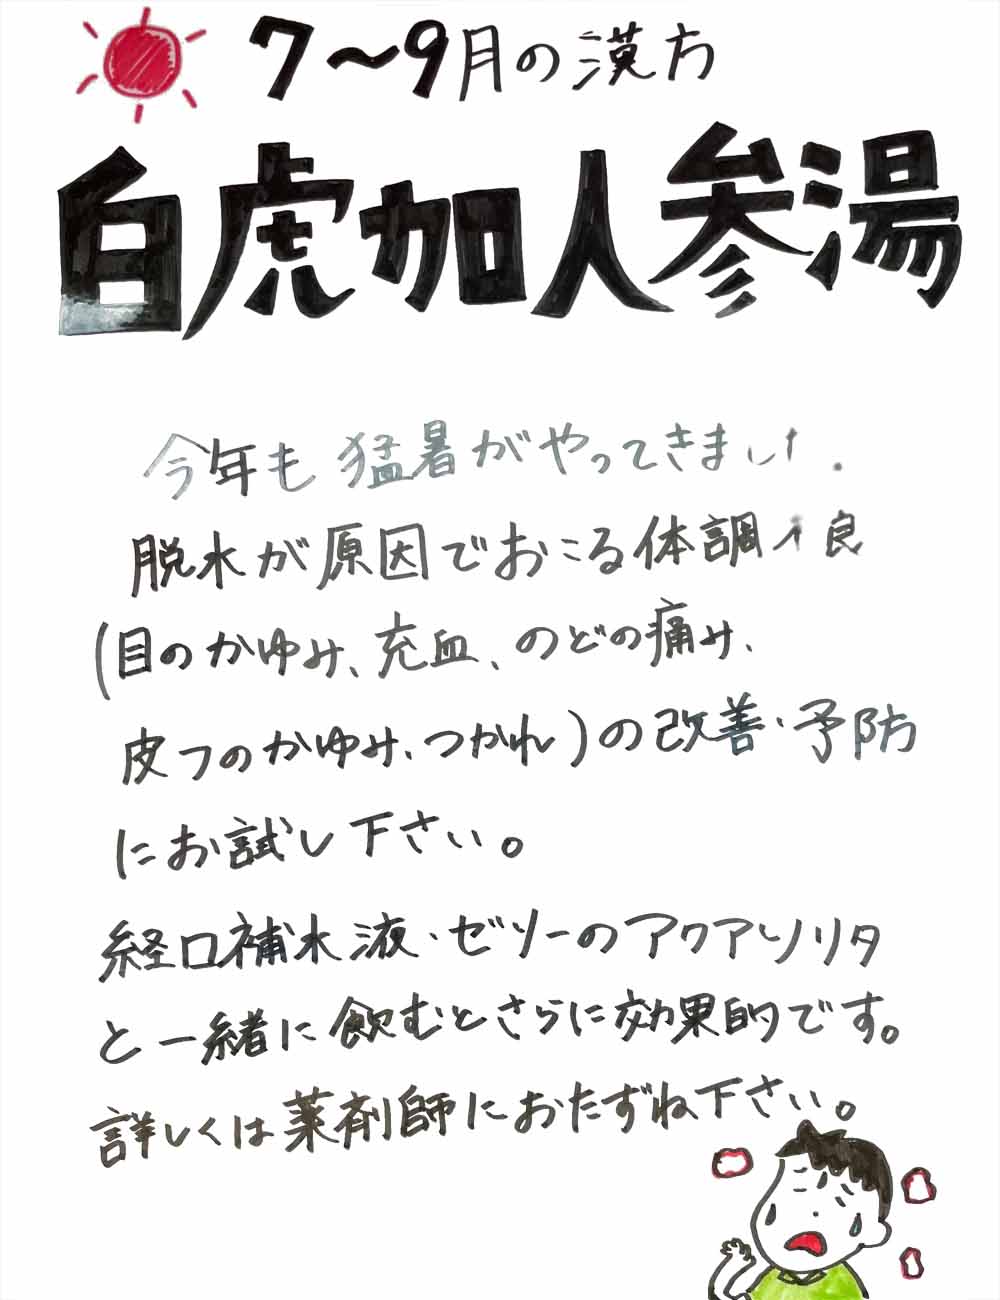 7～9月の漢方
白虎加人参湯
今年も猛暑がやってきまし
脱水が原因でおこる体調 良
(目のかゆみ、充血、のどの痛み、
皮フのかゆみ、つかれ)の改善・予防
にお試し下さい。
経口補水液・ゼリーのアクアソリタ
と一緒に飲むとさらに効果的です。
詳しくは薬剤師におたずね下さい。